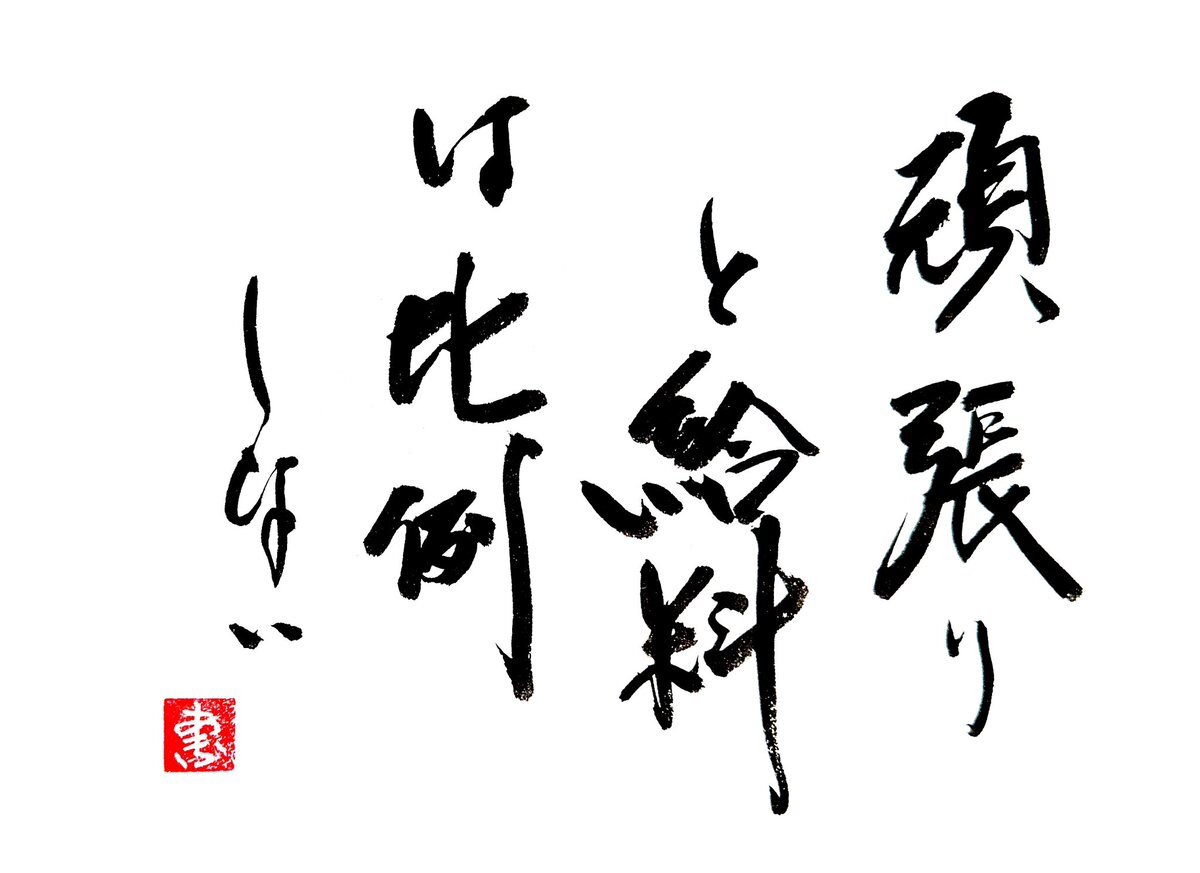 頑張り
と給料
は比例
しない